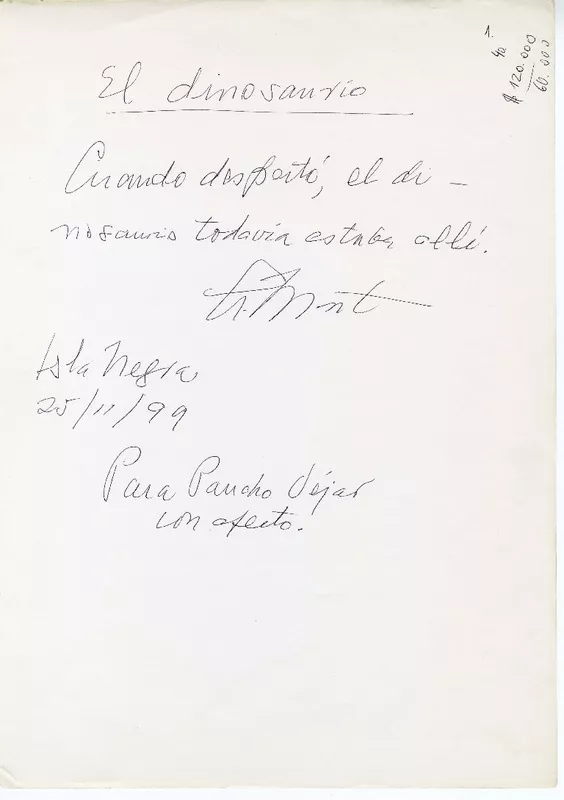 1.
40.
$ 120.000
60.000
El dinosaurio
Cuando despertó, el di-
nosaurio todavía estaba allí.
Isla Negra
25/11/99
Para Pancho Véjar
con afecto.